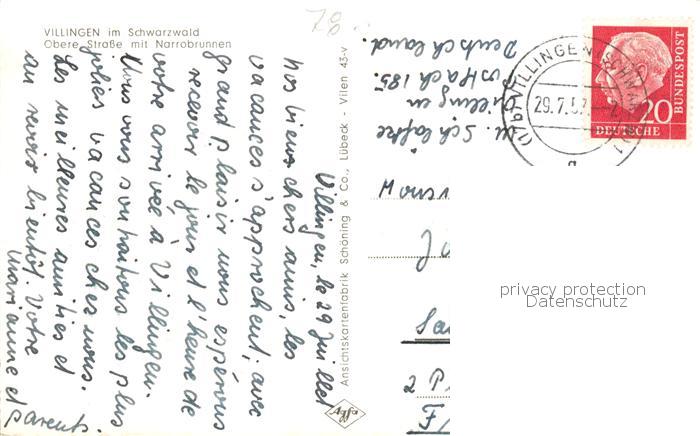 VILLINGEN im Schwarzwald
Obere Straße mit Narrobrunnen
78
Villingen, le 29 juillet
nos biens chers amis, les
vacances s'approchent, avec
grand plaisir nous espérons
revoir le jour et l'heure de
votre arrivée à Villingen.
Nous vous souhaitons les plus
jolies vacances chez nous.
Les meilleures amitiés et
au revoir bientôt. Votre
Marianne et
parents.
Ansichtskartenfabrik Schöning & Co., Lübeck - Vilen 43-v
Agfa
Villingen
Deutschland.
VILLINGEN (SCHWARZW)
29.7.57
DEUTSCHE
BUNDESPOST
20
2 P
F/
privacy protection
Datenschutz